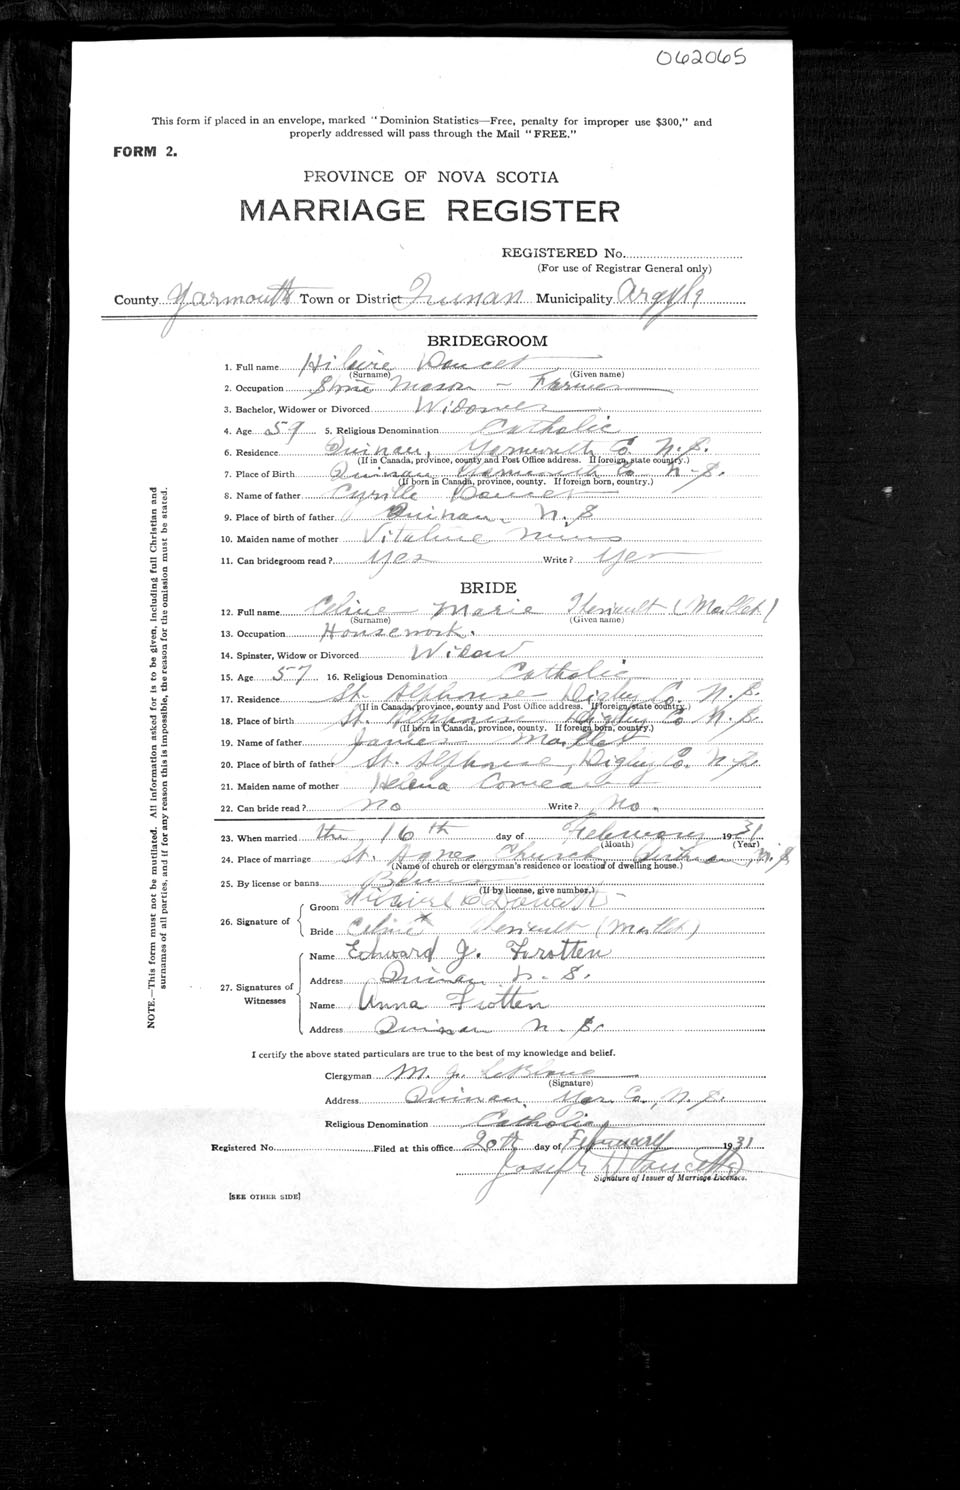 062065
This form if placed in an envelope, marked "Dominion Statistics—Free, penalty for improper use $300," and
properly addressed will pass through the Mail "FREE."
FORM 2.
PROVINCE OF NOVA SCOTIA
MARRIAGE REGISTER
REGISTERED No.
(For use of Registrar General only)
County Yarmouth Town or District Quinan Municipality Argyle
BRIDEGROOM
1. Full name Hilaire Doucet
(Surname) (Given name)
2. Occupation Stone Mason - Farmer
3. Bachelor, Widower or Divorced Widower
4. Age 59 5. Religious Denomination Catholic
6. Residence Quinan, Yarmouth Co. N.S.
(If in Canada, province, county and Post Office address. If foreign, state country.)
7. Place of Birth Quinan Yarmouth Co N-S.
(If born in Canada, province, county. If foreign born, country.)
8. Name of father Cyrille Doucet
9. Place of birth of father Quinan, N.S
10. Maiden name of mother Vitaline
11. Can bridegroom read? Yes Write? Yes
BRIDE
12. Full name Celine Marie Theriault (Mallet)
(Surname) (Given name)
13. Occupation Housework.
14. Spinster, Widow or Divorced Widow
15. Age 57 16. Religious Denomination Catholic
17. Residence St. Alphonse - Digby Co. N.S.
(If in Canada, province, county and Post Office address. If foreign, state country.)
18. Place of birth St. Alphonse Digby Co N.S.
(If born in Canada, province, county. If foreign born, country.)
19. Name of father James Mallet
20. Place of birth of father St. Alphonse, Digby Co. N.S.
21. Maiden name of mother Helena Comeau
22. Can bride read? No Write? No.
23. When married the 16th day of February 1931
(Month) (Year)
24. Place of marriage St. Agnes Church Quinan, N.S.
(Name of church or clergyman's residence or location of dwelling house.)
25. By license or banns Banns
(If by license, give number.)
26. Signature of
Groom Hilaire Doucett
Bride Celine x Theriault (Mallet)
27. Signatures of Witnesses
Name Edward J. Frotten
Address Quinan N-S.
Name Anna Frotten
Address Quinan N.S.
I certify the above stated particulars are true to the best of my knowledge and belief.
Clergyman M. J. LeBlanc
(Signature)
Address Quinan, Yar. Co., N.S.
Religious Denomination Catholic
Registered No. Filed at this office 20th day of February 1931
Joseph Doucette
Signature of Issuer of Marriage Licenses.
[SEE OTHER SIDE]
NOTE.—This form must not be mutilated. All information asked for is to be given, including full Christian and
surnames of all parties, and if for any reason this is impossible, the reason for the omission must be stated.